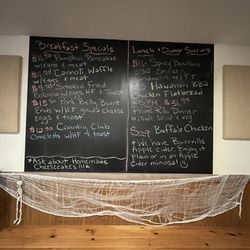 Breakfast Specials
$11.50 Pumpkin Pancakes
w/eggs & meat
$11.50 Cannoli Waffle
w/eggs & meat
$9.50 Smoked Fried
Bologna w/eggs HF & toast
$13.50 Pork Belly Burnt
Ends w/HF gouda cheese
eggs & toast
$12.50 Country Club
Omelette w/HF & toast
*Ask about Homemade
Cheesecakes!!!
Lunch & Dinner Specials
$16 Spicy Bourbon
BBQ
$16 Hawaiian BBQ
Chicken Flatbread
$31.95
Prime Rib Dinner
w/ Salad &
Soup Buffalo Chicken
*We have Burrville
Apple cider. Enjoy it
Plain or in an Apple
Cider mimosa!